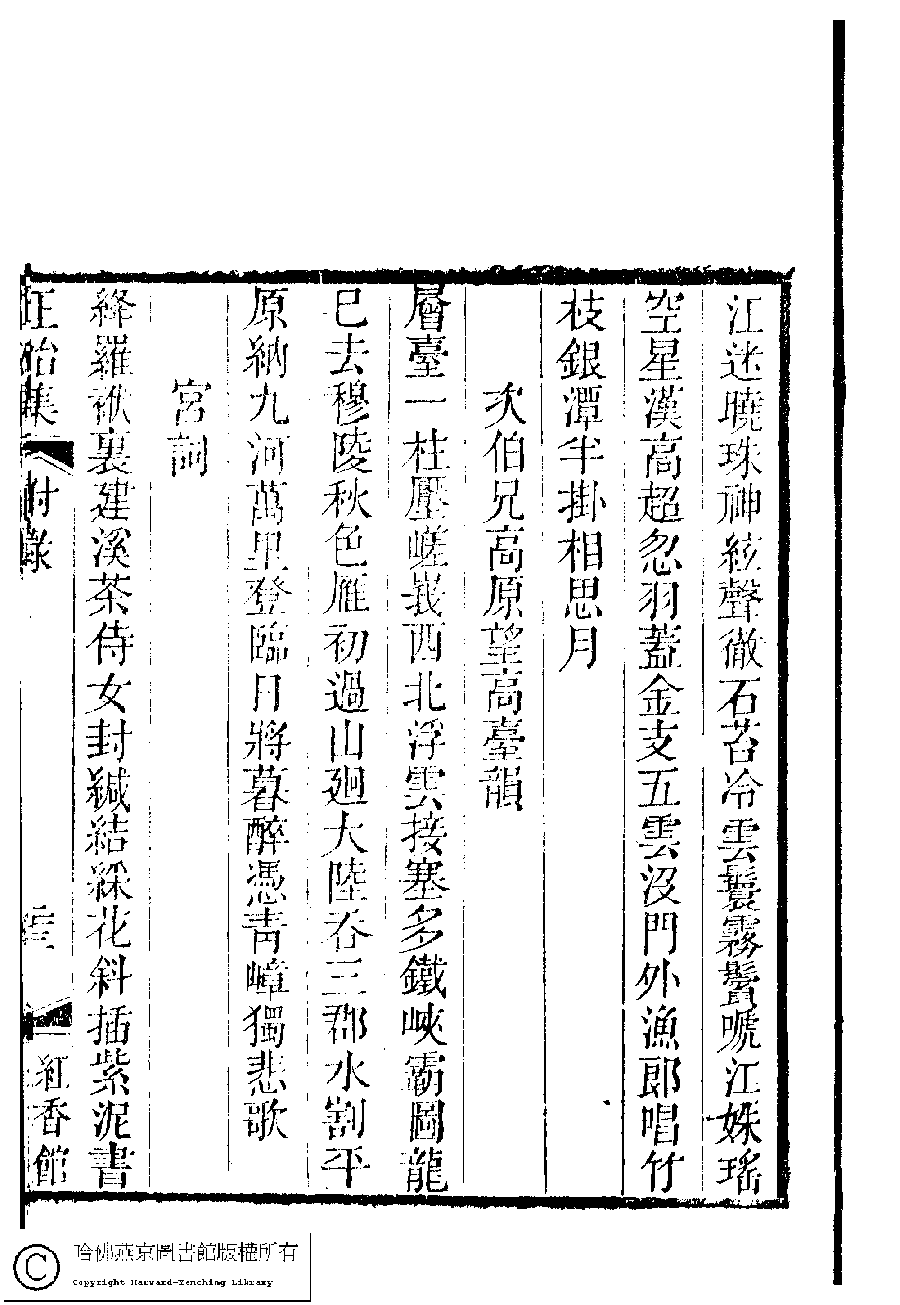 江迷曉珠神絃聲徹石苔冷雲鬟霧鬢嗁江姝瑤
空星漢高超忽羽蓋金支五雲沒門外漁郎唱竹
枝銀潭半掛相思月
次伯兄高原望高臺韻
層臺一柱壓嵯峩西北浮雲接塞多鐵峽霸圖龍
已去穆陵秋色雁初過山廻大陸吞三郡水劃平
原納九河萬里登臨日將暮醉憑青嶂獨悲歌
宮詞
絳羅袱裏建溪茶侍女封緘結綵花斜插紫泥書
正始集
附錄
紅香館
哈佛燕京圖書館版權所有
© Copyright Harvard-Yenching Library